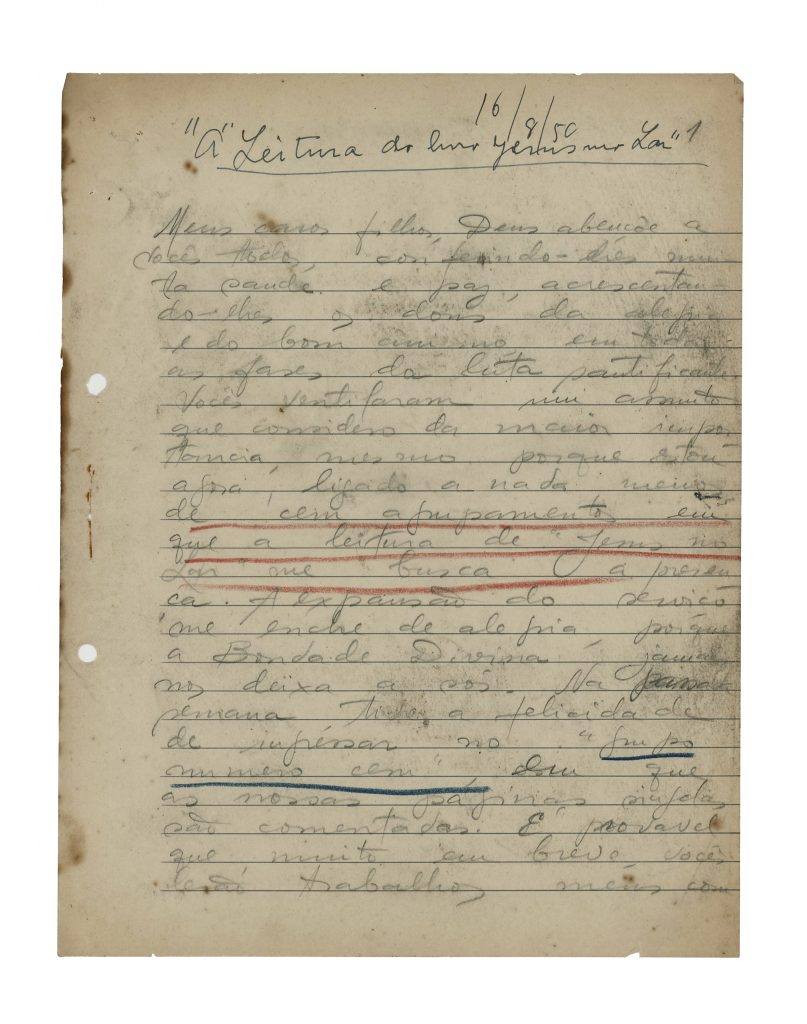 16/8/50
"A" Leitura do livro Jesus no Lar" 1
Meus caros filhos, Deus abençõe a
vocês todos, conferindo-lhes mui-
ta saude e paz, acrescentan-
do-lhes os dons da alegria
e do bom ânimo em todas
as fases da luta santificante.
Vocês ventilaram um assunto
que considero da maior impor
tancia, mesmo porque estou
agora, ligado a nada menos
de cem agrupamentos em
que a leitura de "Jesus no
Lar" me busca a presen
ca. A expansão do serviço
me enche de alegria porque
a Bondade Divina jamais
nos deixa a sós. Na passada
semana tive a felicidade
de ingressar no "grupo
numero cem" em que
as nossas páginas singelas
são comentadas. É provavel
que muito em breve vocês
lerão trabalhos meus com